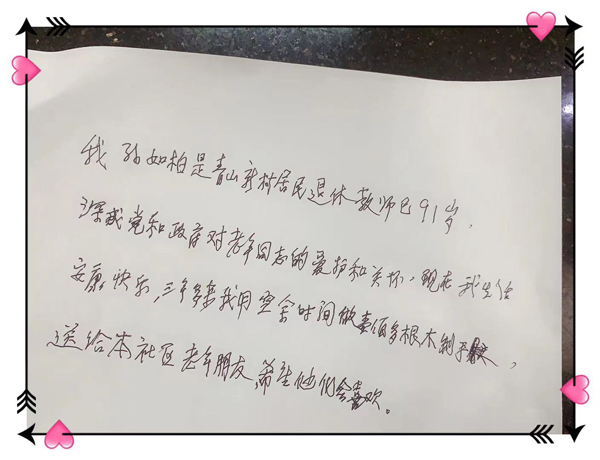 我孙如柏是青山新村居民退休教师已91岁，
深感党和政府对老年同志的爱护和关怀，现在我生活
安康快乐，三年多来我用空余时间做了百多根木制手杖，
送给本社区老年朋友希望他们会喜欢。